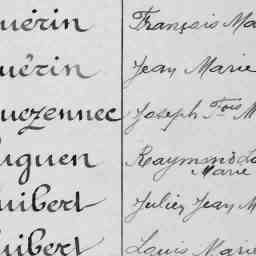 uérin François Ma
uérin Jean Marie
uezennec Joseph Fois M
uguen Raymond Lo
Marie
uibert Julien Jean M
uibert Louis Marie